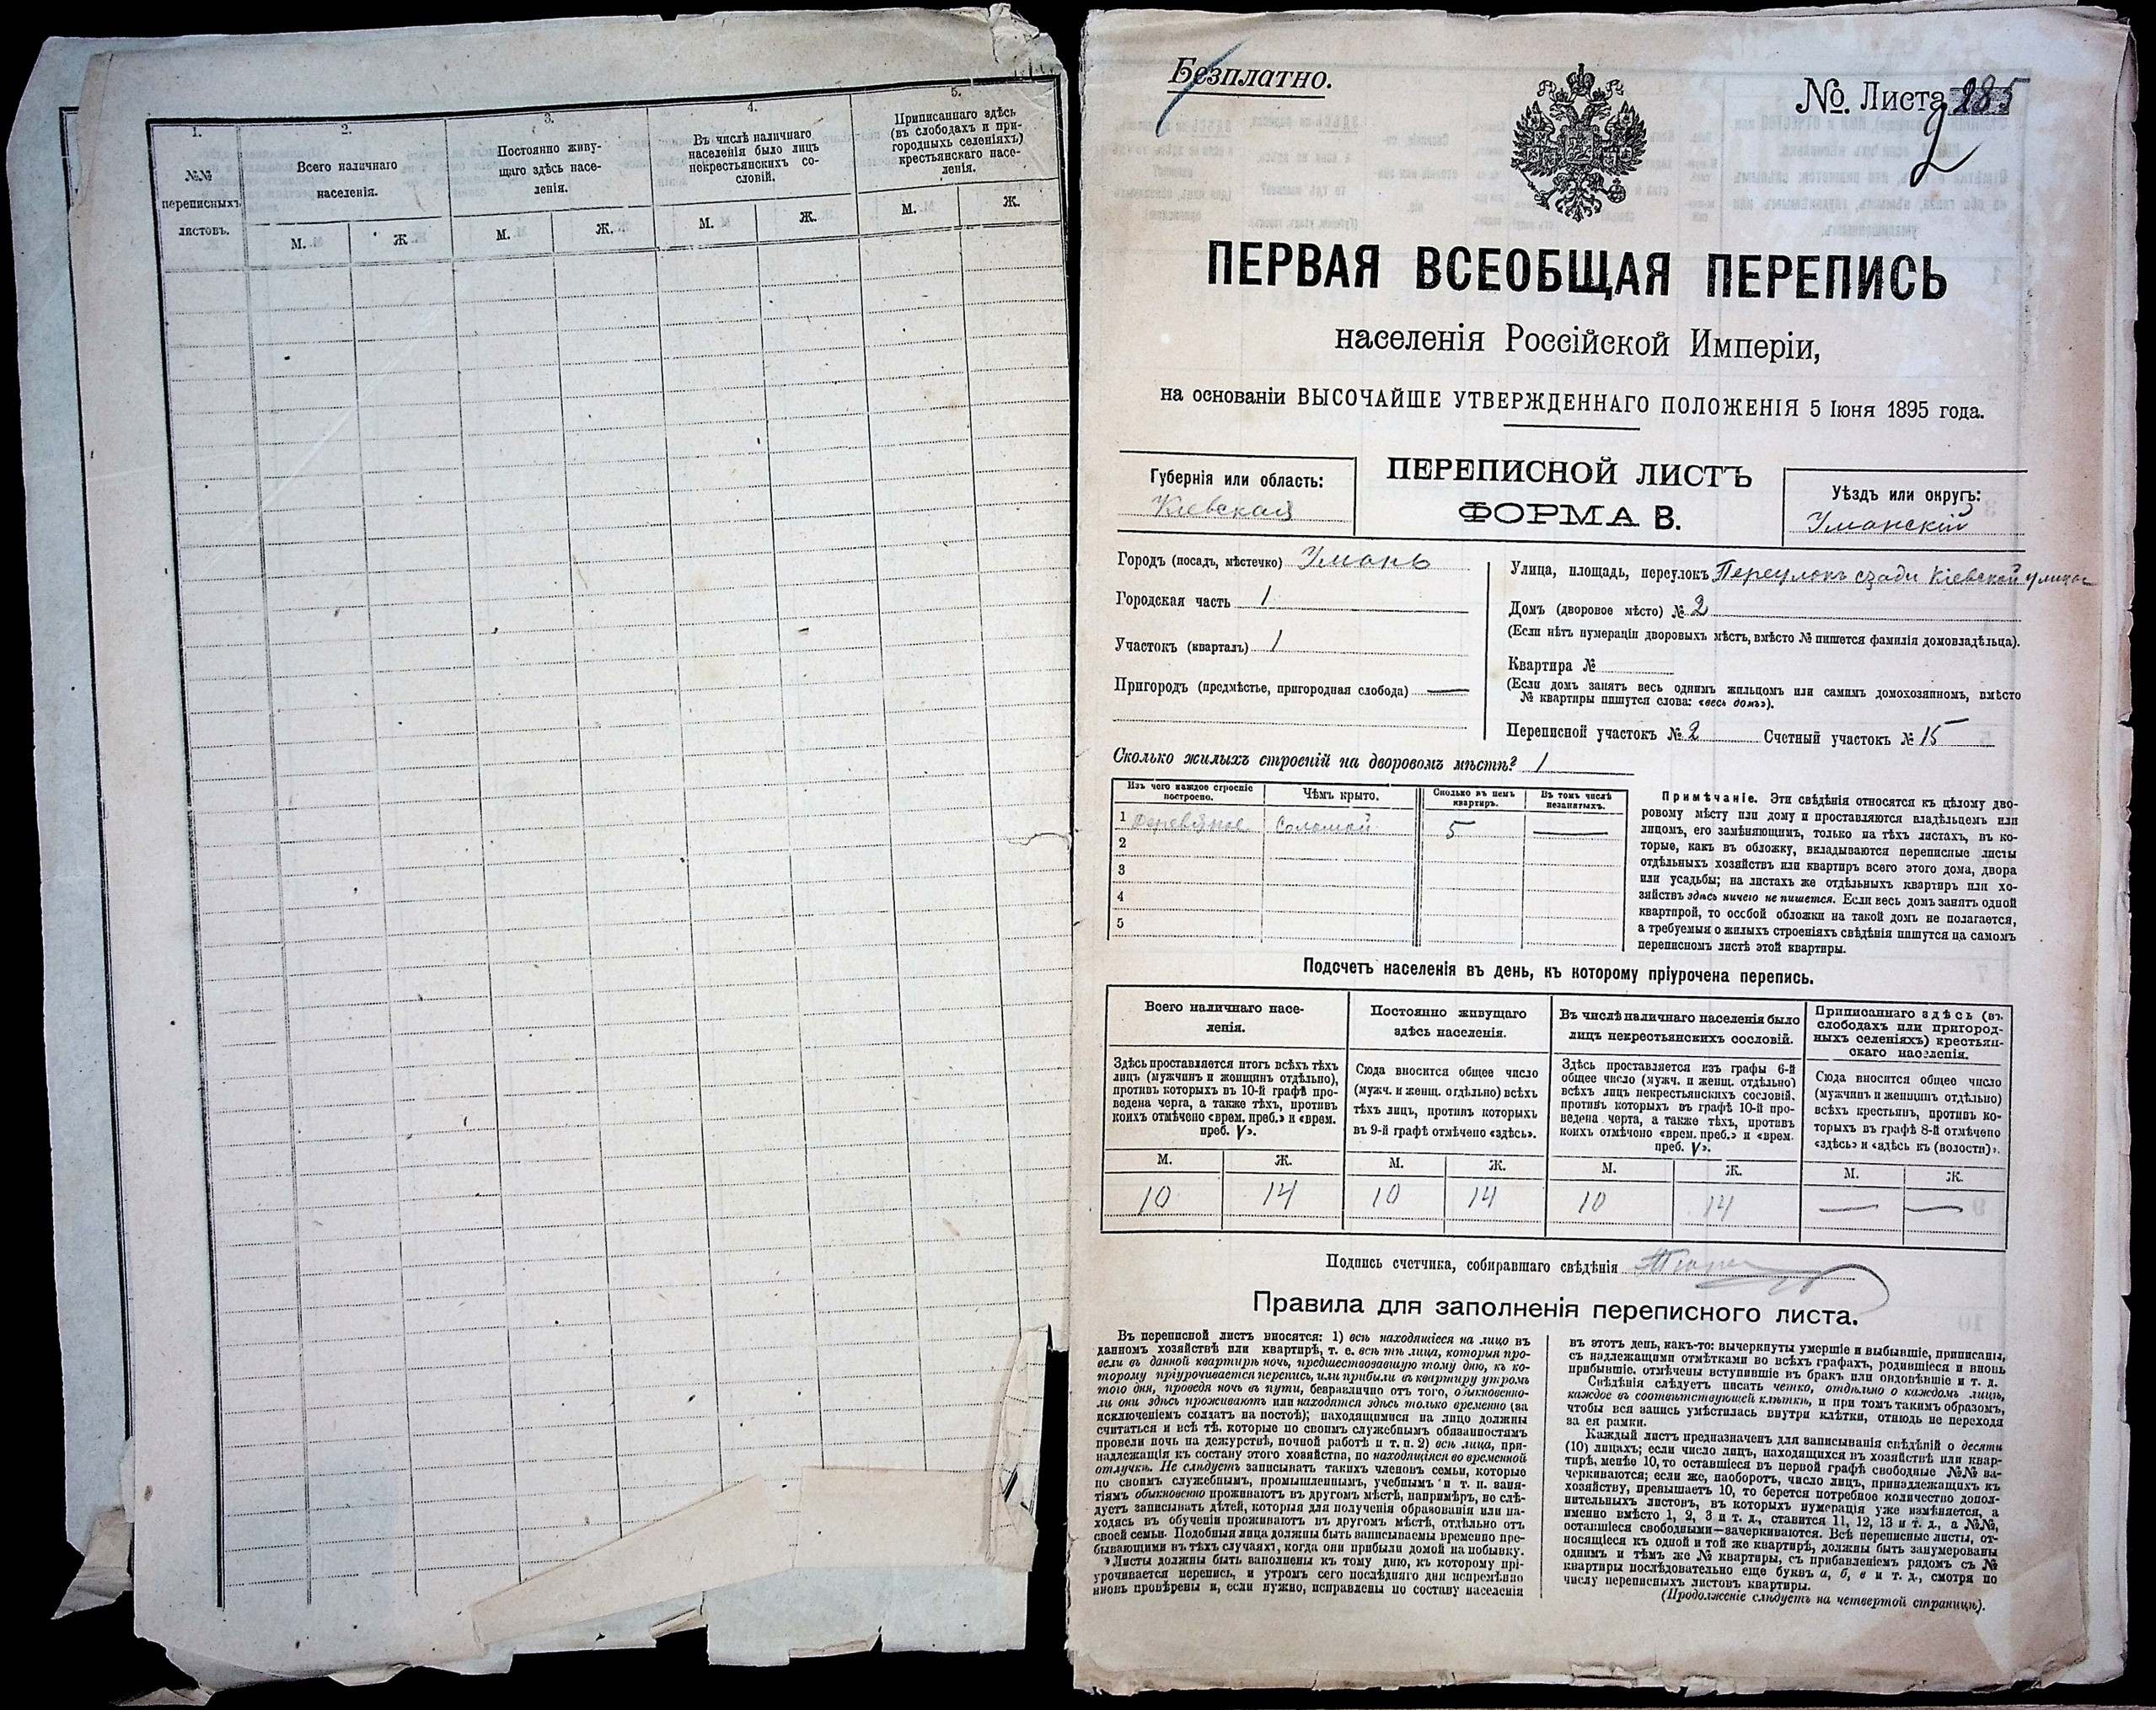 1.
№№
переписныхъ
листовъ.
2.
Всего наличнаго
населенія.
М.
Ж.
3.
Постоянно живу-
щаго здѣсь насе-
ленія.
М.
Ж.
4.
Въ числѣ наличнаго
населенія было лицъ
некрестьянскихъ со-
словій.
М.
Ж.
5.
Приписаннаго здѣсь
(въ слободахъ и при-
городныхъ селеніяхъ)
крестьянскаго насе-
ленія.
М.
Ж.
Безплатно.
№ Листа 285
2
ПЕРВАЯ ВСЕОБЩАЯ ПЕРЕПИСЬ
населенія Россійской Имперіи,
на основаніи ВЫСОЧАЙШЕ УТВЕРЖДЕННАГО ПОЛОЖЕНІЯ 5 Іюня 1895 года.
Губернія или область:
Кіевская
ПЕРЕПИСНОЙ ЛИСТЪ
ФОРМА В.
Уѣздъ или округъ:
Уманскій
Городъ (посадъ, мѣстечко) Умань
Городская часть 1
Участокъ (кварталъ) 1
Пригородъ (предмѣстье, пригородная слобода) —
Улица, площадь, переулокъ Переулокъ сзади Кіевской улицы
Домъ (дворовое мѣсто) № 2
(Если нѣтъ нумераціи дворовыхъ мѣстъ, вмѣсто № пишется фамилія домовладѣльца).
Квартира №
(Если домъ занятъ весь однимъ жильцомъ или самимъ домохозяиномъ, вмѣсто
№ квартиры пишутся слова: «весь домъ»).
Переписной участокъ № 2 Счетный участокъ № 15
Сколько жилыхъ строеній на дворовомъ мѣстѣ? 1
Изъ чего каждое строеніе
построено.
Чѣмъ крыто.
Сколько въ немъ
квартиръ.
Въ томъ числѣ
незанятыхъ.
1 Деревяное Соломой 5 —
2
3
4
5
Примѣчаніе. Эти свѣдѣнія относятся къ цѣлому дво-
ровому мѣсту или дому и проставляются владѣльцемъ или
лицомъ, его замѣняющимъ, только на тѣхъ листахъ, въ ко-
торые, какъ въ обложку, вкладываются переписные листы
отдѣльныхъ хозяйствъ или квартиръ всего этого дома, двора
или усадьбы; на листахъ же отдѣльныхъ квартиръ или хо-
зяйствъ здѣсь ничего не пишется. Если весь домъ занятъ одной
квартирой, то особой обложки на такой домъ не полагается,
а требуемыя о жилыхъ строеніяхъ свѣдѣнія пишутся на самомъ
переписномъ листѣ этой квартиры.
Подсчетъ населенія въ день, къ которому пріурочена перепись.
Всего наличнаго насе-
ленія.
Здѣсь проставляется итогъ всѣхъ тѣхъ
лицъ (мужчинъ и женщинъ отдѣльно),
противъ которыхъ въ 10-й графѣ про-
ведена черта, а также тѣхъ, противъ
коихъ отмѣчено «врем. преб.» и «врем.
преб. V».
Постоянно живущаго
здѣсь населенія.
Сюда вносится общее число
(мужч. и женщ. отдѣльно) всѣхъ
тѣхъ лицъ, противъ которыхъ
въ 9-й графѣ отмѣчено «здѣсь».
Въ числѣ наличнаго населенія было
лицъ некрестьянскихъ сословій.
Здѣсь проставляется изъ графы 6-й
общее число (мужч. и женщ. отдѣльно)
всѣхъ лицъ некрестьянскихъ сословій,
противъ которыхъ въ графѣ 10-й про-
ведена черта, а также тѣхъ, противъ
коихъ отмѣчено «врем. преб.» и «врем.
преб. V».
Приписаннаго здѣсь (въ
слободахъ или пригород-
ныхъ селеніяхъ) крестьян-
скаго населенія.
Сюда вносится общее число
(мужчинъ и женщинъ отдѣльно)
всѣхъ крестьянъ, противъ ко-
торыхъ въ графѣ 8-й отмѣчено
«здѣсь» и «здѣсь къ (волости)».
М. Ж. М. Ж. М. Ж. М. Ж.
10 14 10 14 10 14 — —
Подпись счетчика, собиравшаго свѣдѣнія
Правила для заполненія переписного листа.
Въ переписной листъ вносятся: 1) всѣ находящіеся на лицо въ
данномъ хозяйствѣ или квартирѣ, т. е. всѣ тѣ лица, которыя про-
вели въ данной квартирѣ ночь, предшествовавшую тому дню, къ ко-
торому пріурочивается перепись, или прибыли въ квартиру утромъ
того дня, проведя ночь въ пути, безразлично отъ того, обыкновенно-
ли они здѣсь проживаютъ или находятся здѣсь только временно (за
исключеніемъ солдатъ на постоѣ); находящимися на лицо должны
считаться и всѣ тѣ, которые по своимъ служебнымъ обязанностямъ
провели ночь на дежурствѣ, ночной работѣ и т. п. 2) всѣ лица, при-
надлежащія къ составу этого хозяйства, но находящіяся во временной
отлучкѣ. Не слѣдуетъ записывать такихъ членовъ семьи, которые
по своимъ служебнымъ, промышленнымъ, учебнымъ и т. п. заня-
тіямъ обыкновенно проживаютъ въ другомъ мѣстѣ, напримѣръ, не слѣ-
дуетъ записывать дѣтей, которыя для полученія образованія или на-
ходясь въ обученіи проживаютъ въ другомъ мѣстѣ, отдѣльно отъ
своей семьи. Подобныя лица должны быть записываемы временно пре-
бывающими въ тѣхъ случаяхъ, когда они прибыли домой на побывку.
Листы должны быть заполнены къ тому дню, къ которому прі-
урочивается перепись, и утромъ сего послѣдняго дня непремѣнно
вновь провѣрены и, если нужно, исправлены по составу населенія
въ этотъ день, какъ-то: вычеркнуты умершіе и выбывшіе, приписаны,
съ надлежащими отмѣтками во всѣхъ графахъ, родившіеся и вновь
прибывшіе, отмѣчены вступившіе въ бракъ или овдовѣвшіе и т. д.
Свѣдѣнія слѣдуетъ писать четко, отдѣльно о каждомъ лицѣ,
каждое въ соотвѣтствующей клѣткѣ, и при томъ такимъ образомъ,
чтобы вся запись умѣстилась внутри клѣтки, отнюдь не переходя
за ея рамки.
Каждый листъ предназначенъ для записыванія свѣдѣній о десяти
(10) лицахъ; если число лицъ, находящихся въ хозяйствѣ или квар-
тирѣ, менѣе 10, то оставшіеся въ первой графѣ свободные №№ за-
черкиваются; если же, наоборотъ, число лицъ, принадлежащихъ къ
хозяйству, превышаетъ 10, то берется потребное количество допол-
нительныхъ листовъ, въ которыхъ нумерація уже измѣняется, а
именно вмѣсто 1, 2, 3 и т. д., ставится 11, 12, 13 и т. д., а №№,
оставшіеся свободными—зачеркиваются. Всѣ переписные листы, от-
носящіеся къ одной и той же квартирѣ, должны быть занумерованы
однимъ и тѣмъ же № квартиры, съ прибавленіемъ рядомъ съ №
квартиры послѣдовательно еще буквъ а, б, в и т. д., смотря по
числу переписныхъ листовъ квартиры.
(Продолженіе слѣдуетъ на четвертой страницѣ).